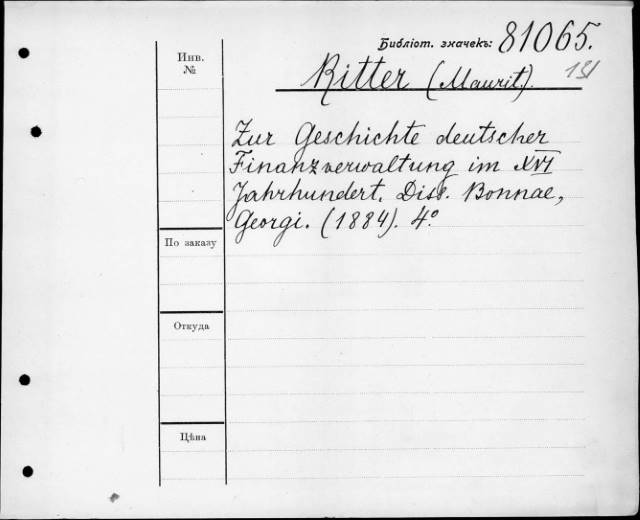 Библіот. значекъ: 81065.
131
Инв.
№
Ritter (Maurit.).
Zur Geschichte deutscher
Finanzverwaltung im XVI
Jahrhundert. Diss. Bonnae,
Georgi. (1884). 4°.
По заказу
Откуда
Цѣна